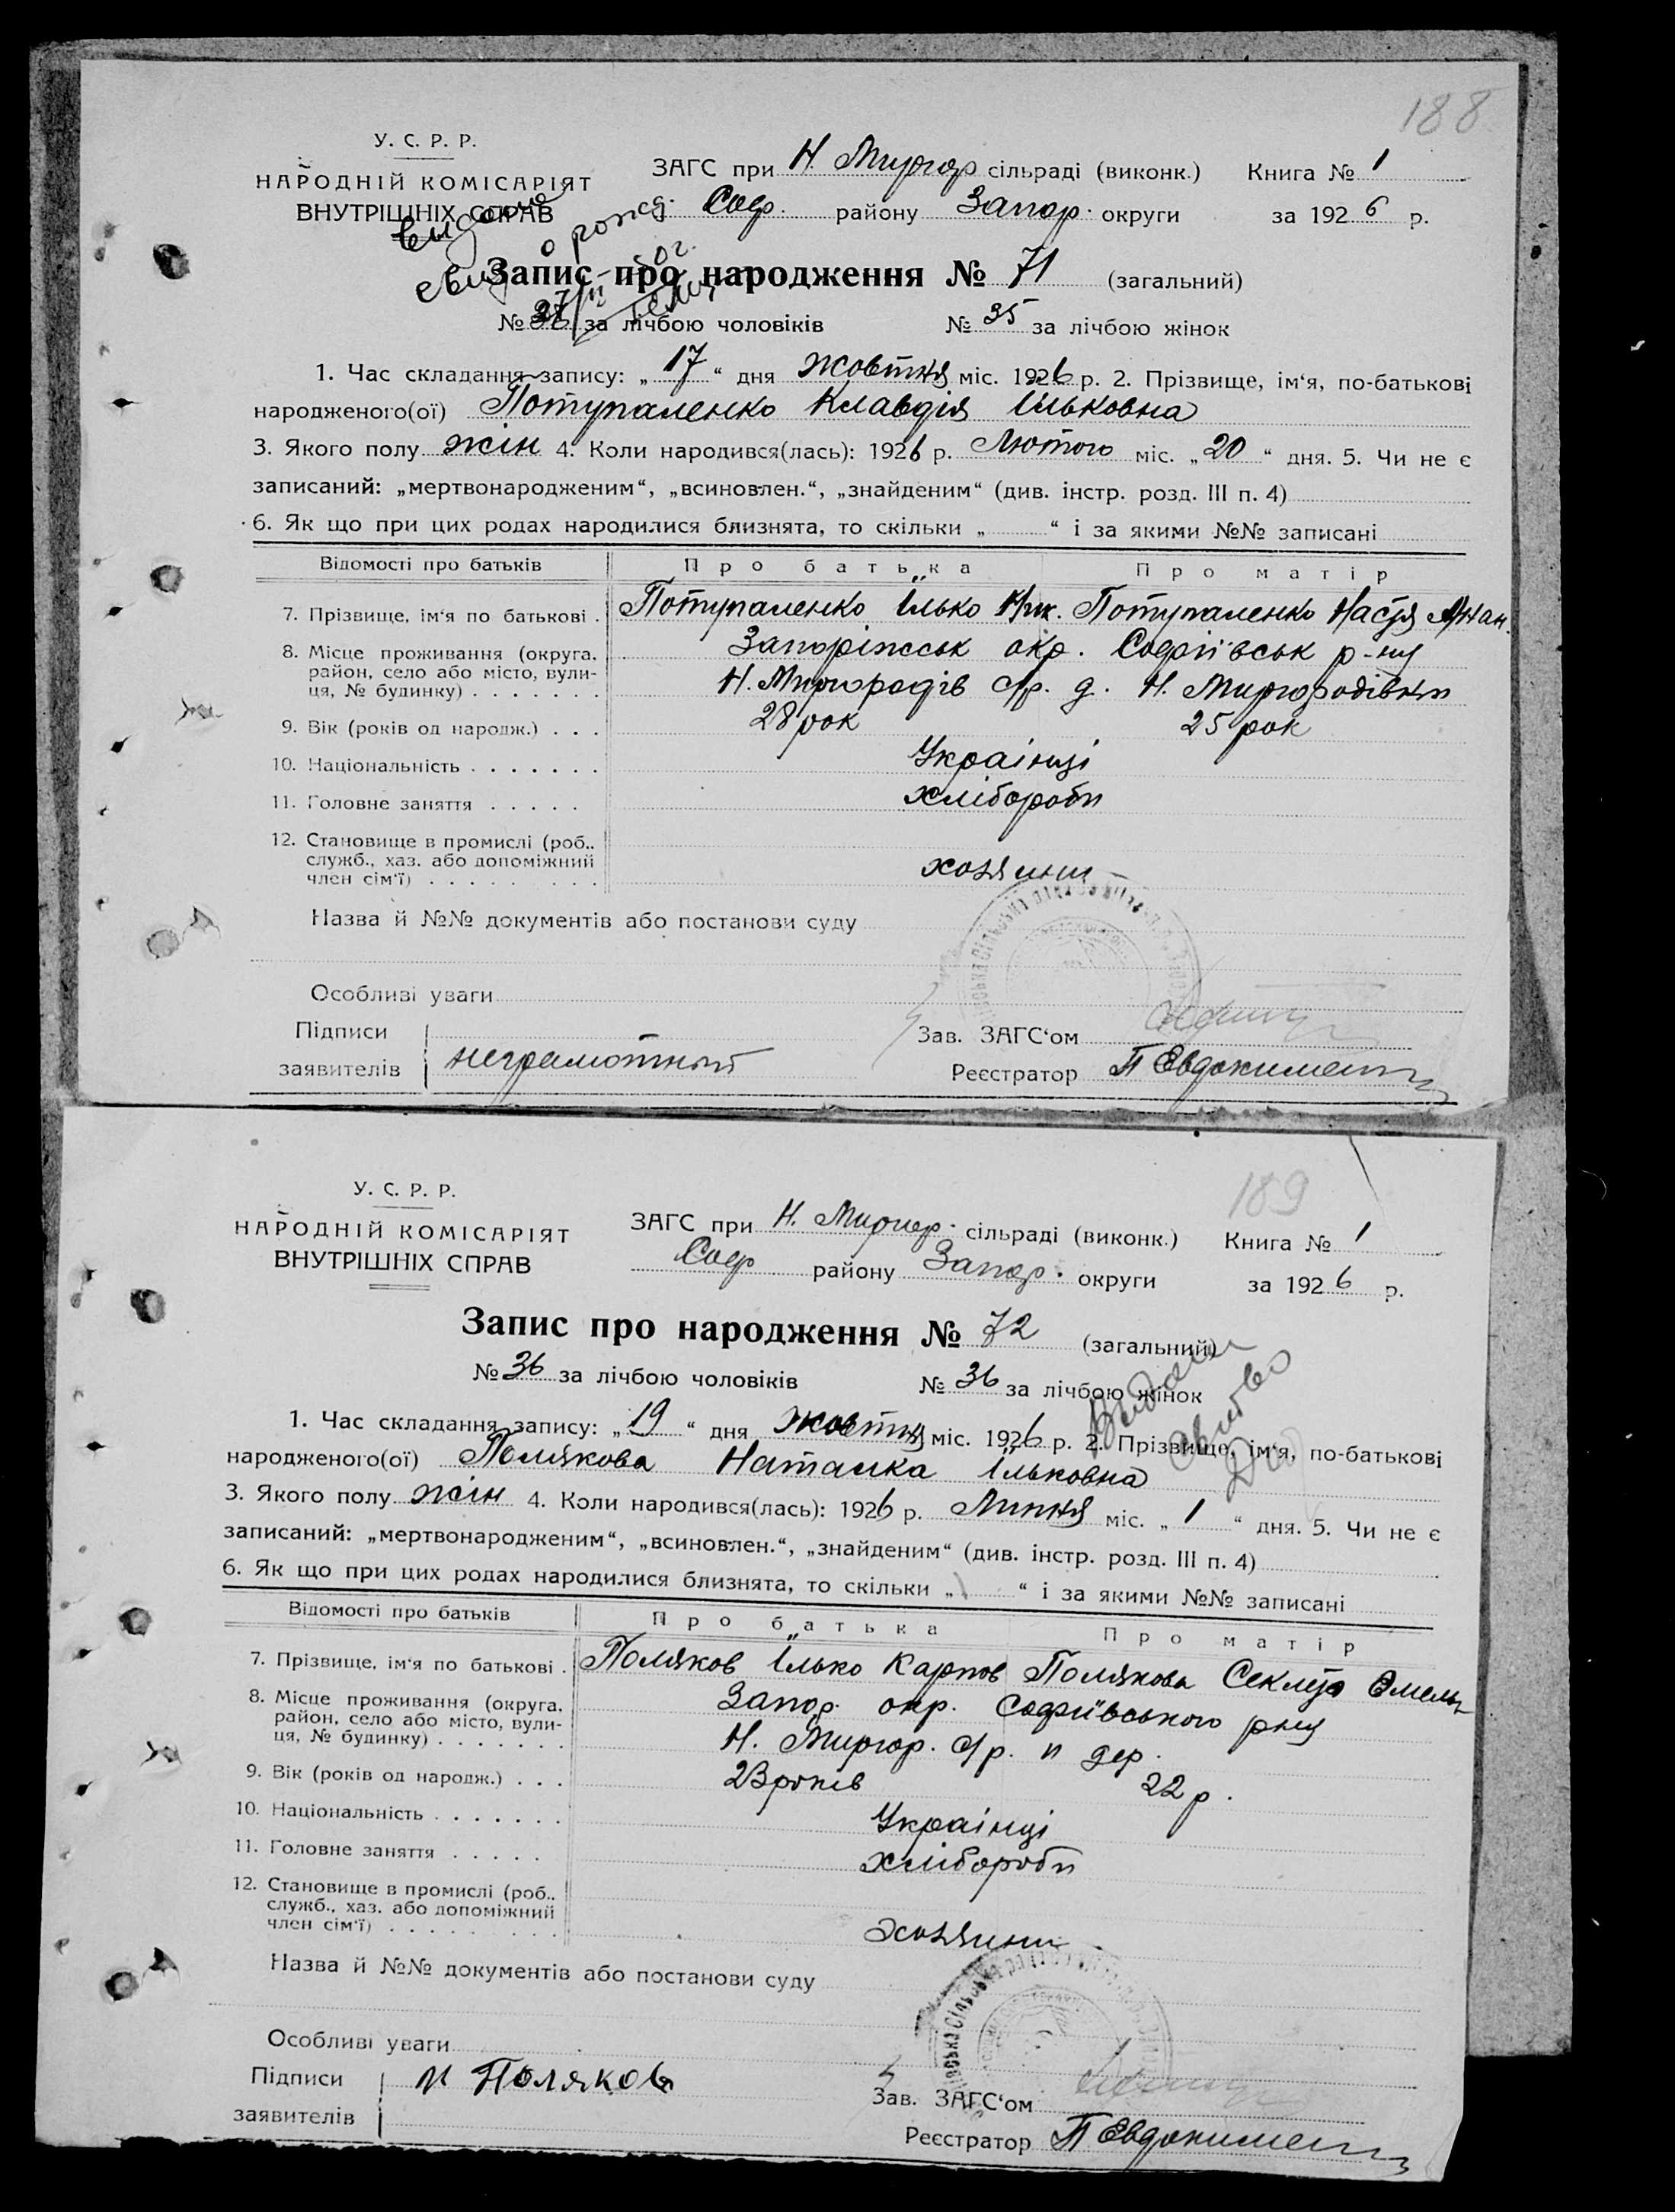 188
У. С. Р. Р.
НАРОДНІЙ КОМІСАРІЯТ
ВНУТРІШНІХ СПРАВ
ЗАГС при Н. Миргор сільраді (виконк.) Книга № 1
Соф. району Запор. округи за 1926 р.
о рожд.
Запис про народження № 71 (загальний)
№ за лічбою чоловіків № 35 за лічбою жінок
1. Час складання запису: „17“ дня жовтня міс. 1926 р. 2. Прізвище, ім‘я, по-батькові
народженого(ої) Потупаленко Клавдія Ільковна
3. Якого полу жін 4. Коли народився(лась): 1926 р. Лютого міс. „20“ дня. 5. Чи не є
записаний: „мертвонародженим“, „всиновлен.“, „знайденим“ (див. інстр. розд. III п. 4)
6. Як що при цих родах народилися близнята, то скільки „ “ і за якими №№ записані
Відомості про батьків Про батька Про матір
7. Прізвище, ім‘я по батькові . Потупаленко Ілько Ник. Потупаленко Настя
8. Місце проживання (округа, район, село або місто, вулиця, № будинку) . . . . . . . Запоріжськ окр. Софіївськ р-ну
Н. Миргородів с/р. д. Н. Миргородівки
9. Вік (років од народж.) . . . 28 рок 25 рок
10. Національність . . . . . . . Українці
11. Головне заняття . . . . . хлібороби
12. Становище в промислі (роб., служб., хаз. або допоміжний член сім‘ї) . . . . . . . . хозяини
Назва й №№ документів або постанови суду
Особливі уваги
Підписи
заявителів неграмотный
Зав. ЗАГС‘ом
Реєстратор П Евдокимен
189
У. С. Р. Р.
НАРОДНІЙ КОМІСАРІЯТ
ВНУТРІШНІХ СПРАВ
ЗАГС при Н. Миргор. сільраді (виконк.) Книга № 1
Соф району Запор. округи за 1926 р.
Запис про народження № 72 (загальний)
№ 36 за лічбою чоловіків № 36 за лічбою жінок
1. Час складання запису: „19“ дня жовтня міс. 1926 р. 2. Прізвище, ім‘я, по-батькові
народженого(ої) Полякова Наталка Ільковна
3. Якого полу жін 4. Коли народився(лась): 1926 р. Липня міс. „1“ дня. 5. Чи не є
записаний: „мертвонародженим“, „всиновлен.“, „знайденим“ (див. інстр. розд. III п. 4)
6. Як що при цих родах народилися близнята, то скільки „ “ і за якими №№ записані
Відомості про батьків Про батька Про матір
7. Прізвище, ім‘я по батькові . Поляков Ілько Карпов Полякова Секлета Омельк
8. Місце проживання (округа, район, село або місто, вулиця, № будинку) . . . . . . . Запор. окр. Софіївського рну
Н. Миргор. с/р. и дер.
9. Вік (років од народж.) . . . 23 років 22 р.
10. Національність . . . . . . . Українці
11. Головне заняття . . . . . хлібороби
12. Становище в промислі (роб., служб., хаз. або допоміжний член сім‘ї) . . . . . . . . хозяини
Назва й №№ документів або постанови суду
Особливі уваги
Підписи И Поляков
заявителів
Зав. ЗАГС‘ом
Реєстратор П Евдокимен